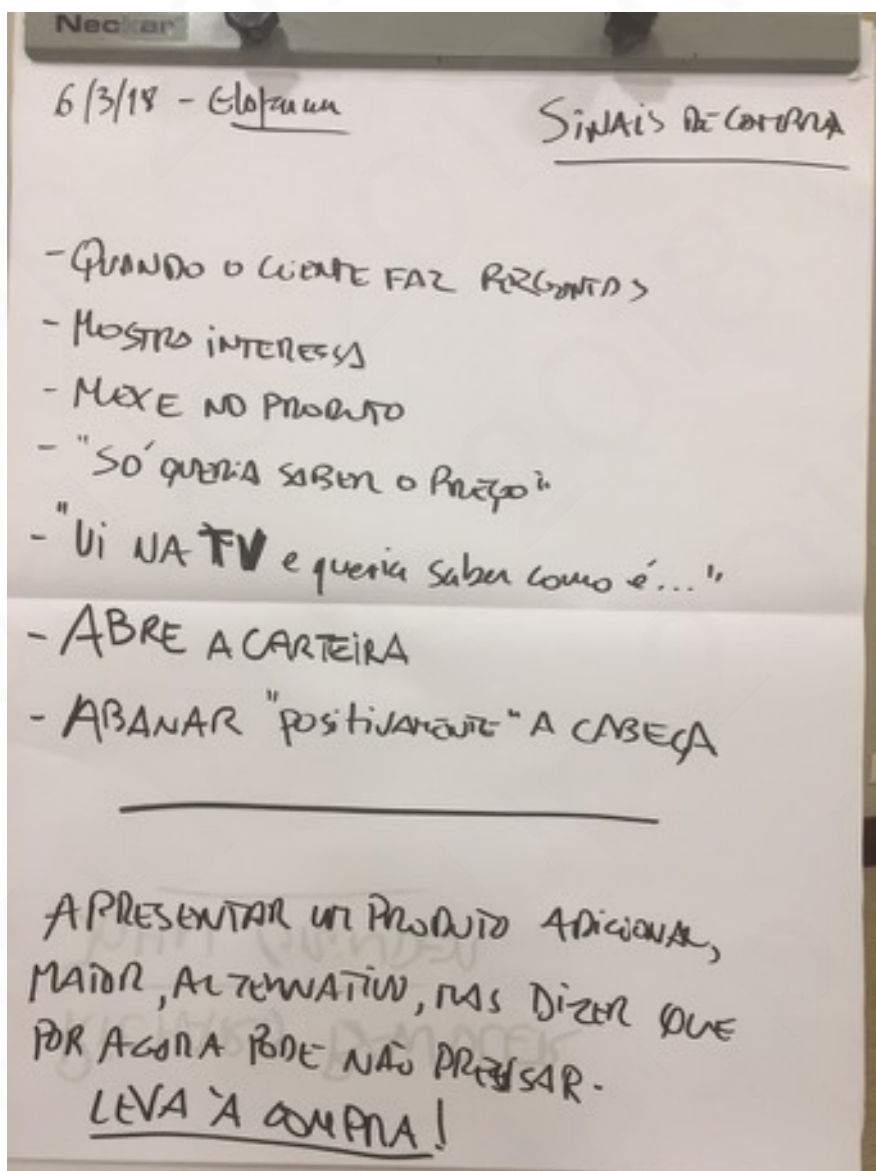 Neckar
6/3/18 -
SINAIS DE COMPRA
- QUANDO O CLIENTE FAZ PERGUNTAS
- MOSTRA INTERESSA
- MEXE NO PRODUTO
- "SÓ QUERIA SABER O PREÇO"
- "Vi NA TV e queria saber como é..."
- ABRE A CARTEIRA
- ABANAR "positivamente" A CABEÇA
APRESENTAR UM PRODUTO ADICIONAL,
MAIOR, ALTERNATIVO, MAS DIZER QUE
POR AGORA PODE NÃO PRECISAR.
LEVA À COMPRA!